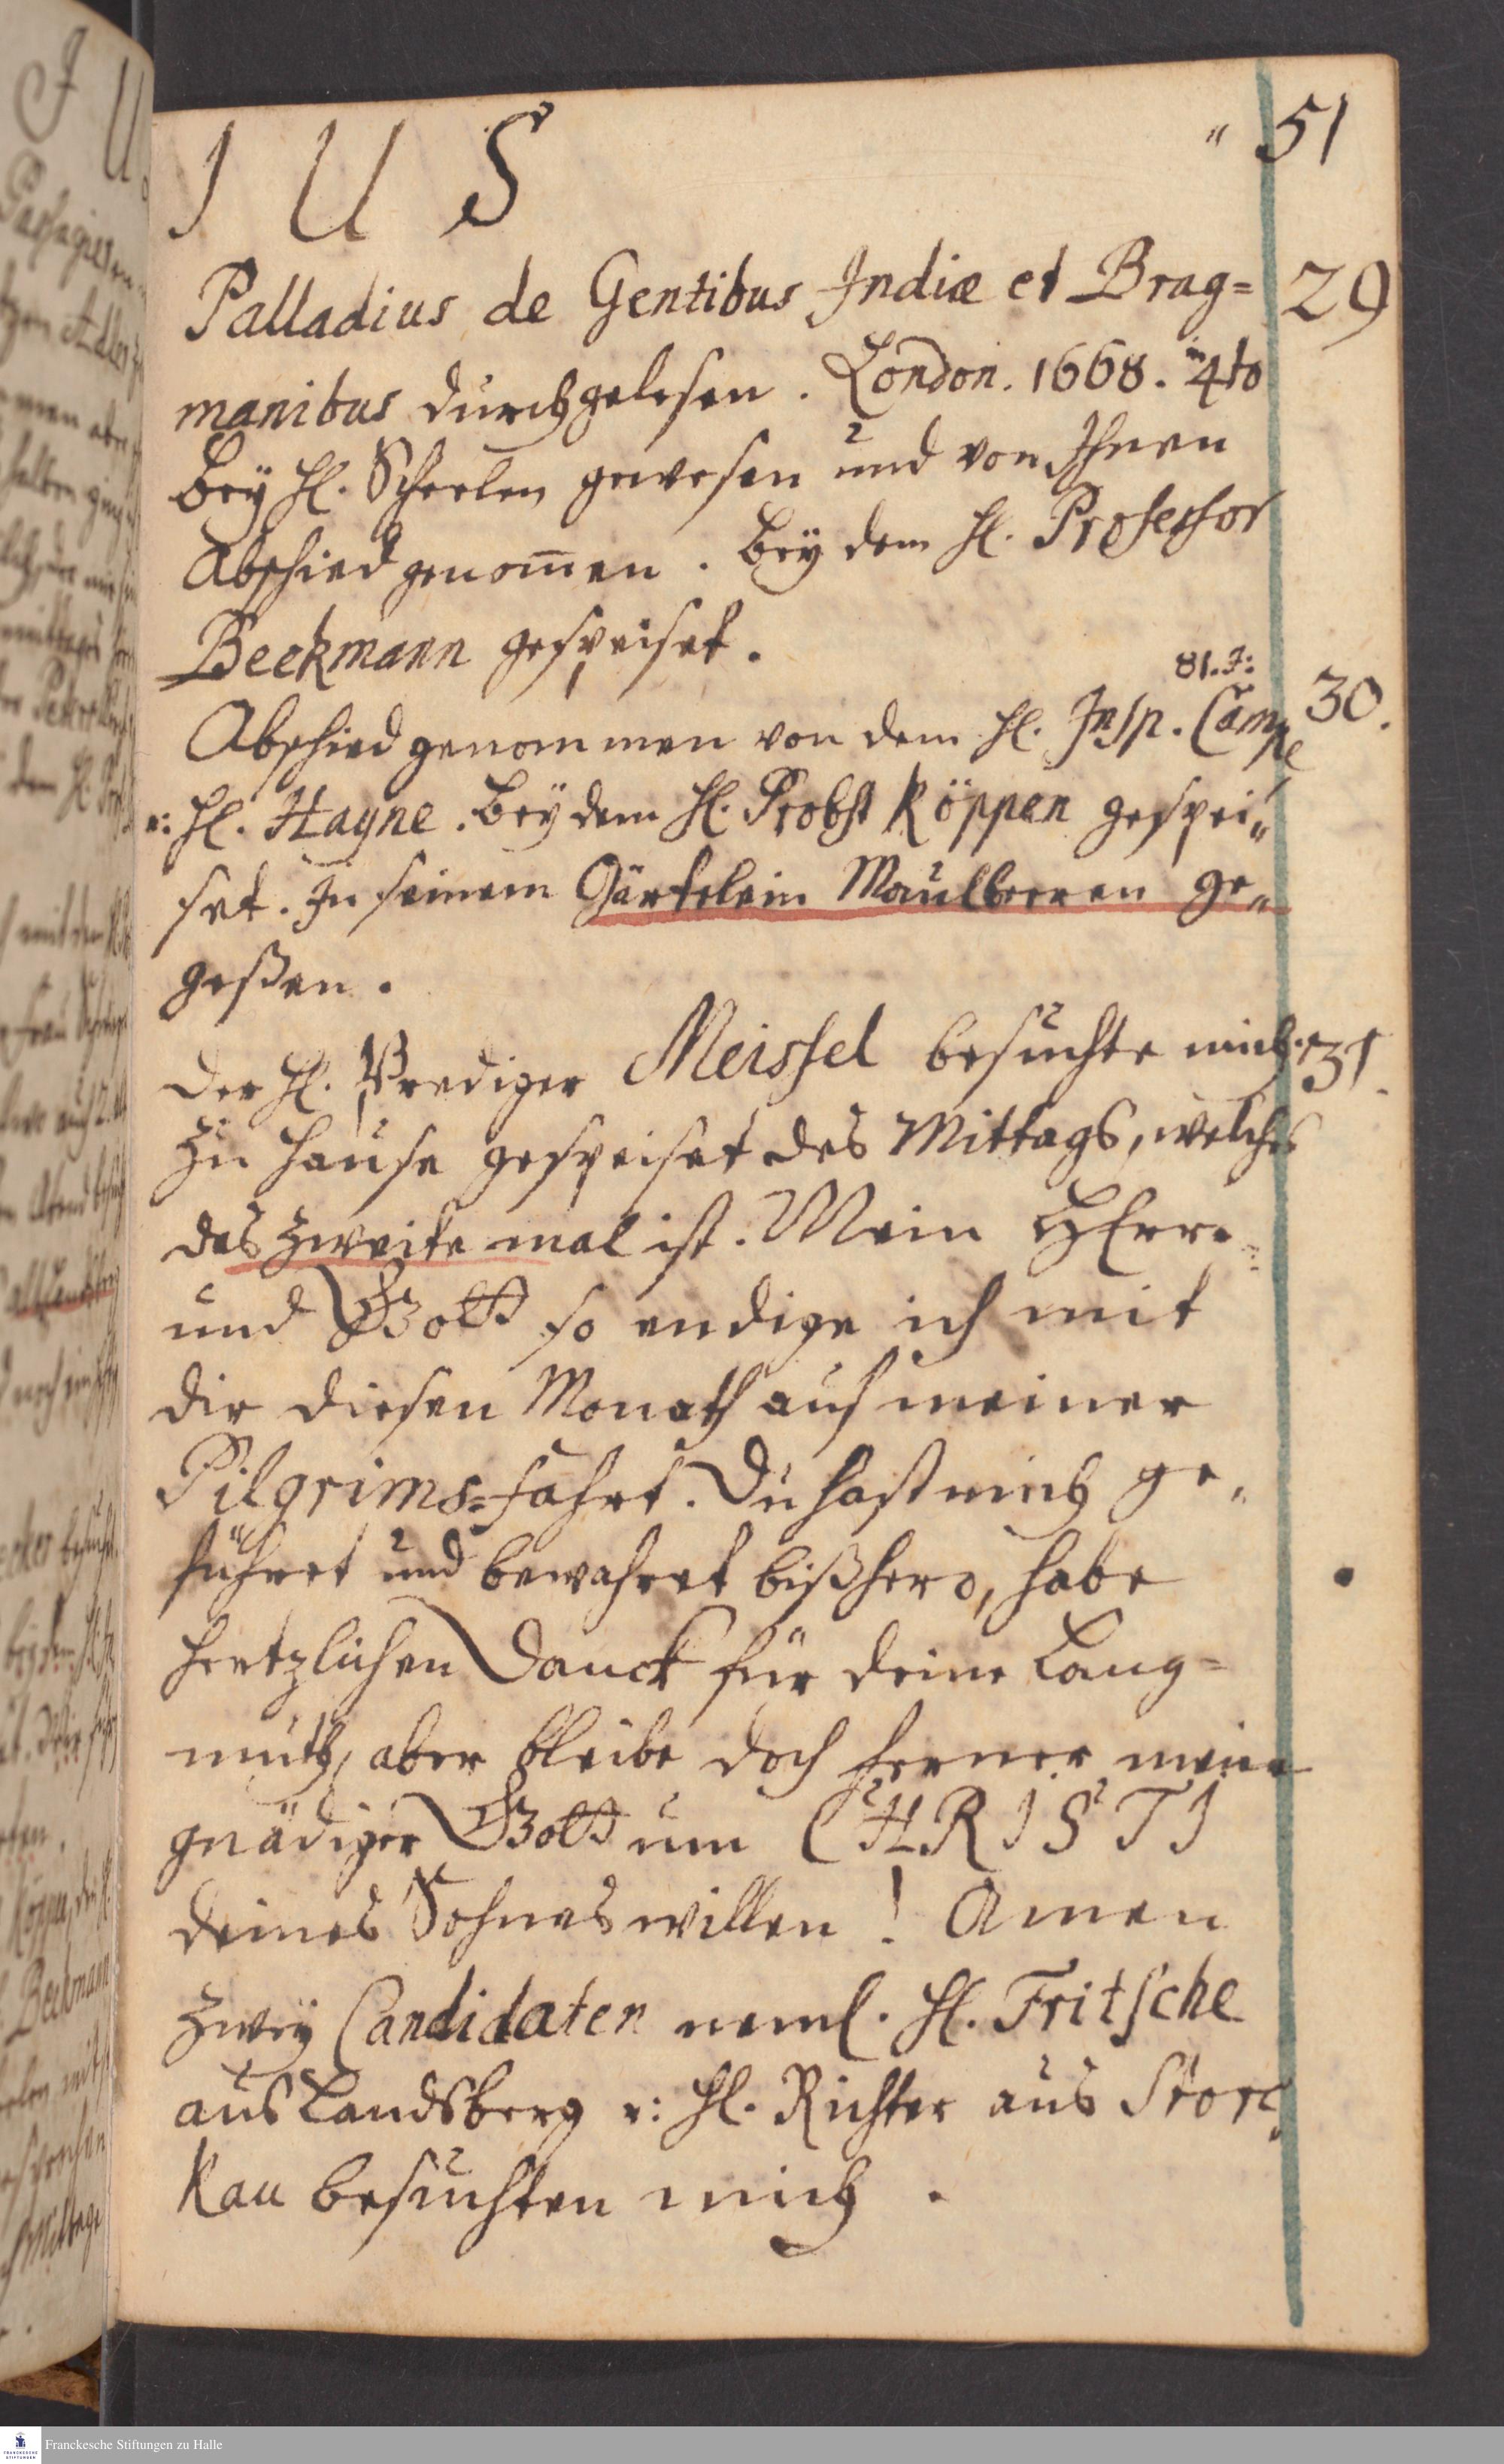 I U S
" 51
Palladius de Gentibus Indiæ et Brag= 29
manibus durchgelesen. London. 1668. in 4to
Bey H. Scherlen gewesen und von Ihnen
Abschied genom̄en. Bey dem H. Professor
Beckmann gespeiset.
81. J:
Abschied genommen von dem H. Insp. Campe 30.
u: H. Hayne. Bey dem H. Probst Köppen gespei„
set. In seinem Gärtelein Maulbeeren ge„
geßen.
Der H. Prediger Meissel besuchte mich. 31.
Zu Hause gespeiset des Mittags, welches
das zweite mal ist. Mein HErr
und Gott so endige ich mit
dir diesen Monath auf meiner
Pilgrims=fahrt. Du hast mich ge„
führet und bewahret bißhero, habe
hertzlichen Danck für deine Lang=
muth, aber bleibe doch ferner mein
gnädiger Gott um CHRISTI
deines Sohnes willen! Amen
Zwey Candidaten neml. H. Fritsche
aus Landsberg u: H. Richter aus Storc„
kau besuchten mich.
Franckesche Stiftungen zu Halle